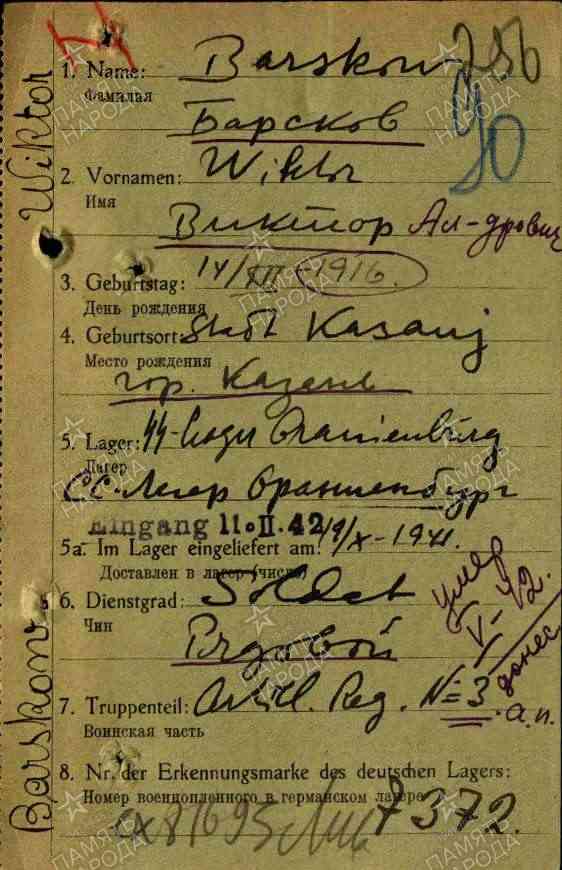 Barskow Wiktor
1. Name: Barskow
Фамилая
Барсков
286
90
2. Vornamen: Wiktor
Имя
Виктор Ал-дрович
3. Geburtstag: 14/XII-1916.
День рождения
4. Geburtsort: Stadt Kasanj
Место рождения
гор. Казань
5. Lager: SS-Lager Oranienburg
Лагерь
СС-Лагер Ораниенбург
Eingang 11. II. 42
5a. Im Lager eingeliefert am: 19/X-1941.
Доставлен в лагерь (число)
6. Dienstgrad: Soldat
Чин
Рядовой
умер
V-42.
донес.
а.п.
7. Truppenteil: Artill. Reg. №=3.
Воинская часть
8. Nr. der Erkennungsmarke des deutschen Lagers:
Номер военнопленного в германском лагере
81695
7372.
ПАМЯТЬ НАРОДА